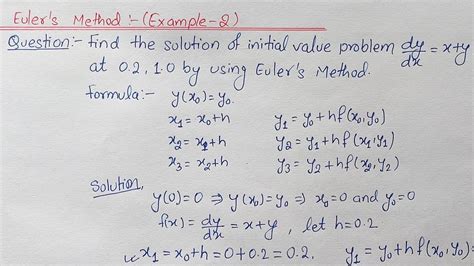 Euler's Method :- (Example-2)
Question:- Find the solution of initial value problem dy/dx = x+y
at 0.2, 1.0 by using Euler's Method.
Formula:- y(x₀)=y₀.
x₁ = x₀+h y₁ = y₀+hf(x₀,y₀)
x₂ = x₁+h y₂ = y₁+hf(x₁,y₁)
x₃ = x₂+h y₃ = y₂+hf(x₂,y₂)
Solution,
y(0)=0 ⇒ y(x₀)=y₀ ⇒ x₀=0 and y₀=0
f(x) = dy/dx = x+y, let h=0.2
x₁ = x₀+h = 0+0.2 = 0.2, y₁ = y₀+hf(x₀,y₀)=